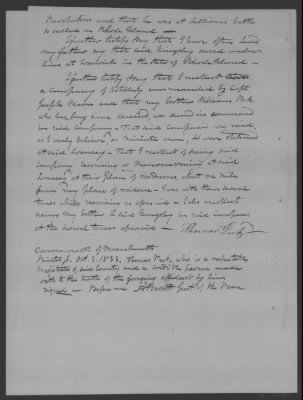 Revolution and that he was at Sullivans battle
so called on Rhode Island —
I further certify & say that I have often heard
my father say that said Kingsley served under
him at in the State of Rhode Island —
I further certify & say that I recollect
a company of commanded by Capt
Joseph and that my brother William Peck
who has long since deceased, was second in command
in said company — That said company was raised
as I verily believe, as minute men, & were
at said — That I recollect of seeing said
company exercising & manoeuvering at said
at their place of rendezvous, about one mile
from my place of residence — I was there several
times while exercising as aforesaid — I also recollect
seeing my brother & said Kingsley in said company
at the several times aforesaid — Thomas Peck
Commonwealth of Massachusetts
Bristol ss. Oct. 3. 1833, Thomas Peck, who is a respectable
of said County and a person made
oath to the truth of the foregoing affidavit by him
signed — Before me Just. of the Peace